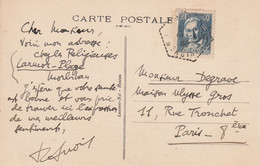 CARTE POSTALE
Cher Monsieur,
Voici mon adresse :
chez les Religieuses
Larmor-Plage
Morbihan
J'espère que votre santé
est bonne et vous prie
de trouver ici l'expression
de mes meilleurs
sentiments,
Monsieur Degrave
Maison Ulysse Gros
11, Rue Tronchet
Paris - 8ème